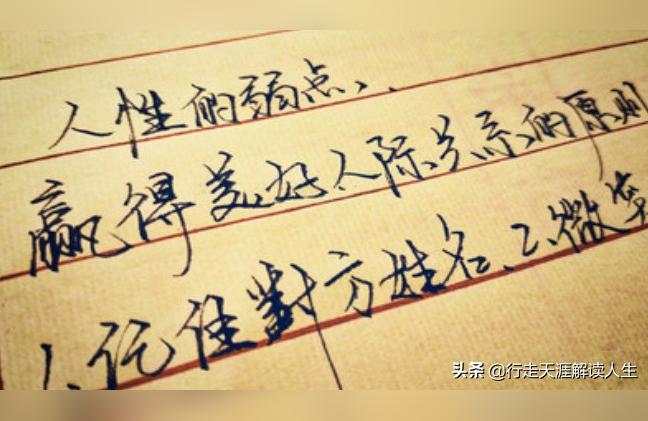 人性的弱点、
赢得美好人际关系的原则
1、记住對方姓名、2、微笑
头条 @行走天涯解读人生